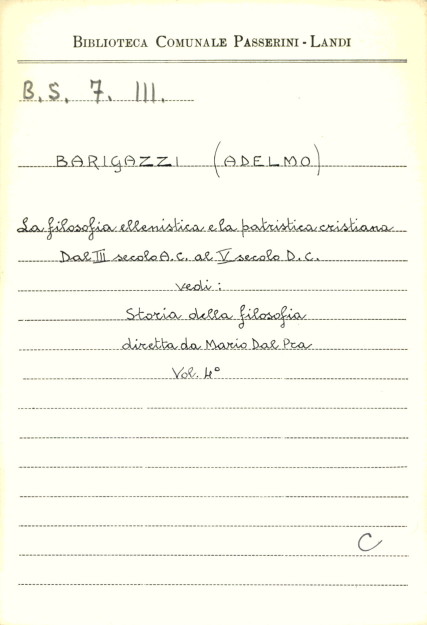 BIBLIOTECA COMUNALE PASSERINI - LANDI
B. S. 7. III.
BARIGAZZI (ADELMO)
La filosofia ellenistica e la patristica cristiana
Dal III secolo A.C. al V secolo D.C.
vedi:
Storia della filosofia
diretta da Mario Dal Pra
Vol. 4°
C